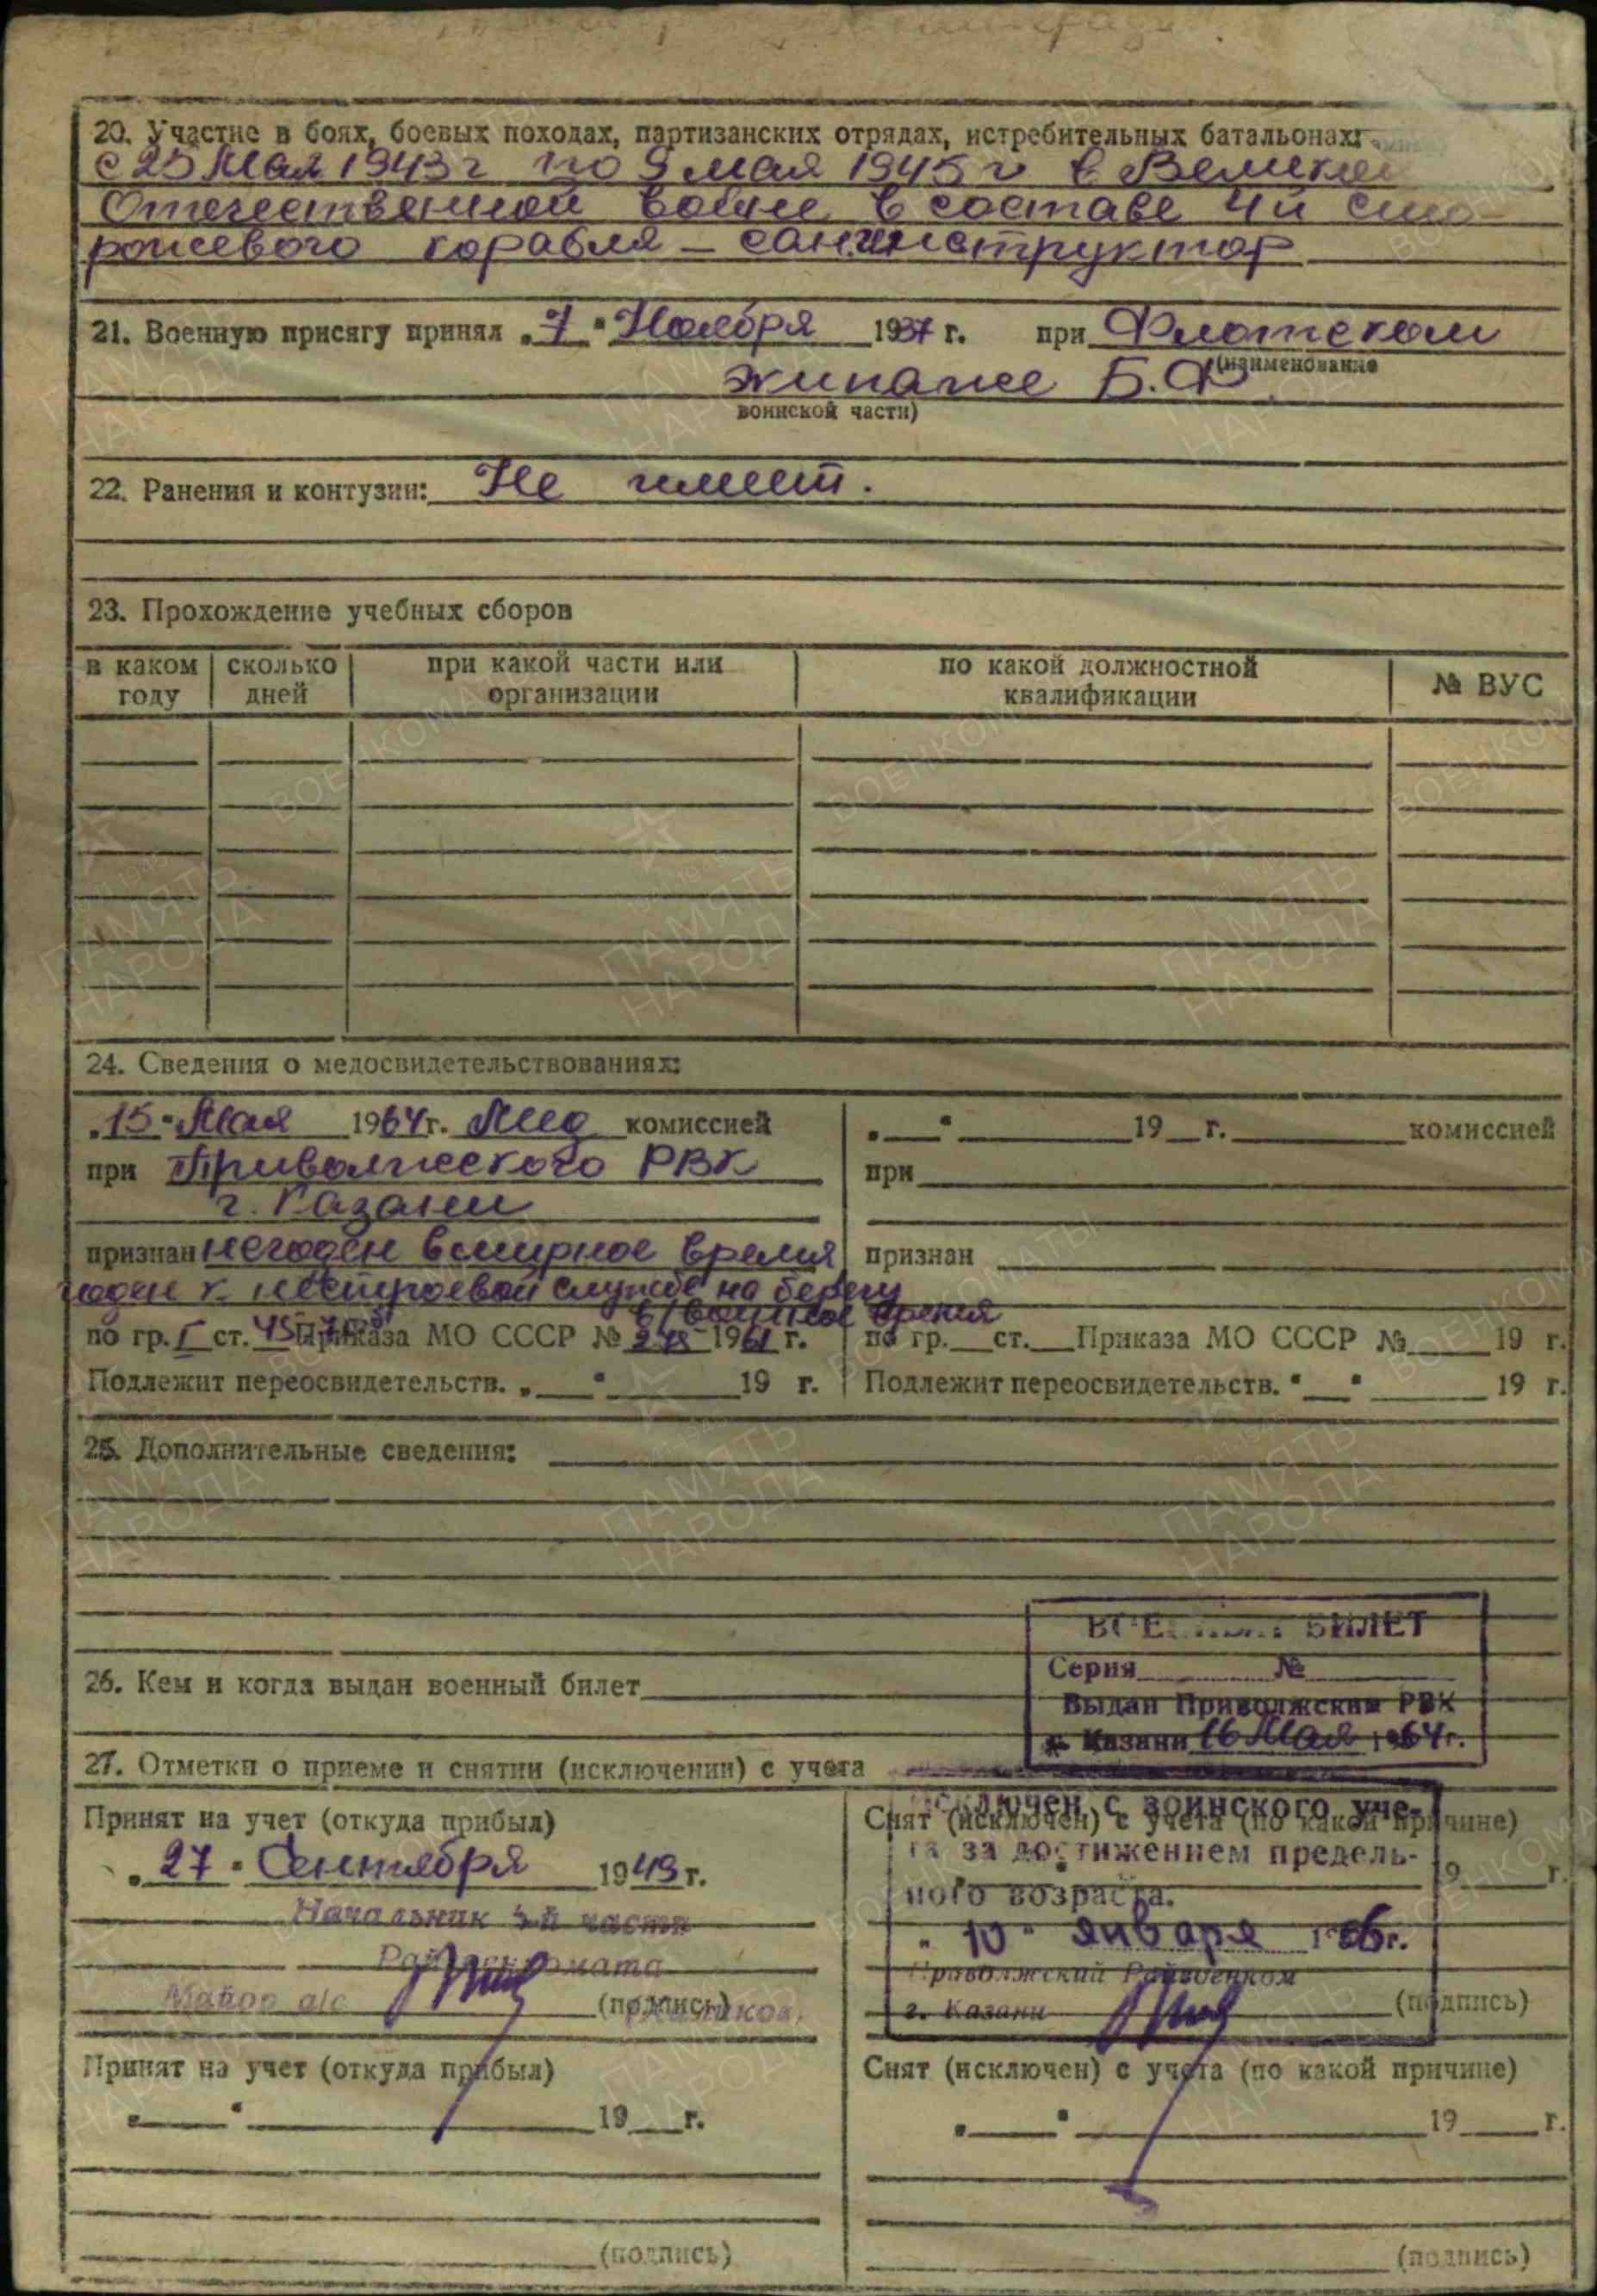 20. Участие в боях, боевых походах, партизанских отрядах, истребительных батальонах:
с 25 Мая 1943 г по 9 мая 1945 г в Великой
Отечественной войне в составе 4й сто-
рожевого корабля - санинструктор
21. Военную присягу принял „7“ Ноября 1937 г. при Флотском
(наименование
экипаже Б.Ф.
воинской части)
22. Ранения и контузии: Не имеет.
23. Прохождение учебных сборов
в каком году | сколько дней | при какой части или организации | по какой должностной квалификации | № ВУС
24. Сведения о медосвидетельствованиях:
„15“ Мая 1964 г. Мед комиссией
при Приволжского РВК
г. Казани
признан негоден в мирное время
годен к нестроевой службе на берегу
в военное время
по гр. I ст. Приказа МО СССР № 1961 г.
Подлежит переосвидетельств. „ “ 19 г.
„ “ 19 г. комиссией
при
признан
по гр. ст. Приказа МО СССР № 19 г.
Подлежит переосвидетельств. „ “ 19 г.
25. Дополнительные сведения:
26. Кем и когда выдан военный билет
ВОЕННЫЙ БИЛЕТ
Серия №
Выдан Приволжским РВК
г. Казани 16 Мая 1964 г.
27. Отметки о приеме и снятии (исключении) с учета
Принят на учет (откуда прибыл)
„27“ Сентября 1949 г.
Начальник 3-й части
Райвоенкомата
Майор а/с
(подпись)
Снят (исключен) с учета (по какой причине)
Исключен с воинского уче-
та за достижением предель-
ного возраста.
„10“ января г.
Приволжский Райвоенком
г. Казани
(подпись)
Принят на учет (откуда прибыл)
„ “ 19 г.
(подпись)
Снят (исключен) с учета (по какой причине)
„ “ 19 г.
(подпись)
ПАМЯТЬ НАРОДА
ВОЕНКОМАТЫ